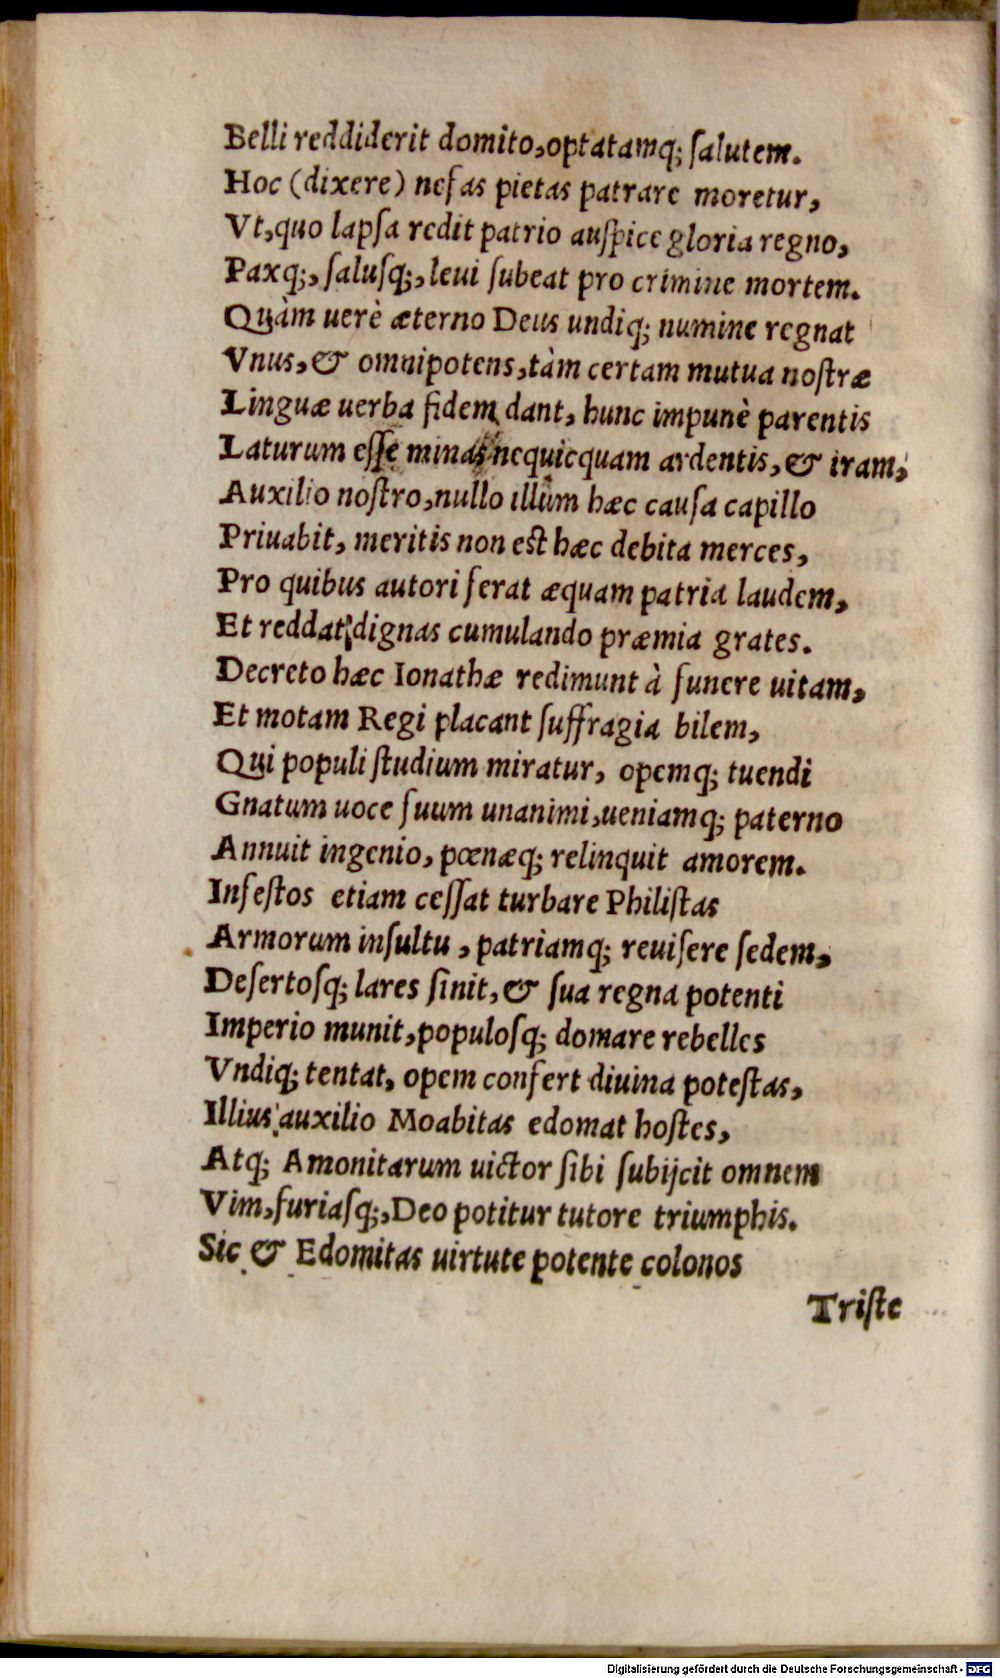 Belli reddiderit domito, optatamq; ſalutem.
Hoc (dixere) nefas pietas patrare moretur,
Vt, quo lapſa redit patrio auſpice gloria regno,
Paxq;, ſaluſq;, leui ſubeat pro crimine mortem.
Quàm uerè æterno Deus undiq; numine regnat
Vnus, & omnipotens, tàm certam mutua noſtræ
Linguæ uerba fidem dant, hunc impunè parentis
Laturum eſſe minas nequicquam ardentis, & iram,
Auxilio noſtro, nullo illum hæc cauſa capillo
Priuabit, meritis non est hæc debita merces,
Pro quibus autori ferat æquam patria laudem,
Et reddat dignas cumulando præmia grates.
Decreto hæc Ionathæ redimunt à funere uitam,
Et motam Regi placant ſuffragia bilem,
Qui populi ſtudium miratur, opemq; tuendi
Gnatum uoce ſuum unanimi, ueniamq; paterno
Annuit ingenio, pœnæq; relinquit amorem.
Infeſtos etiam ceſſat turbare Philiſtas
Armorum inſultu, patriamq; reuiſere ſedem,
Deſertoſq; lares ſinit, & ſua regna potenti
Imperio munit, populoſq; domare rebelles
Vndiq; tentat, opem confert diuina poteſtas,
Illius auxilio Moabitas edomat hoſtes,
Atq; Amonitarum uictor ſibi ſubijcit omnem
Vim, furiaſq;, Deo potitur tutore triumphis.
Sic & Edomitas uirtute potente colonos
Triſte
Digitalisierung gefördert durch die Deutsche Forschungsgemeinschaft - DFG